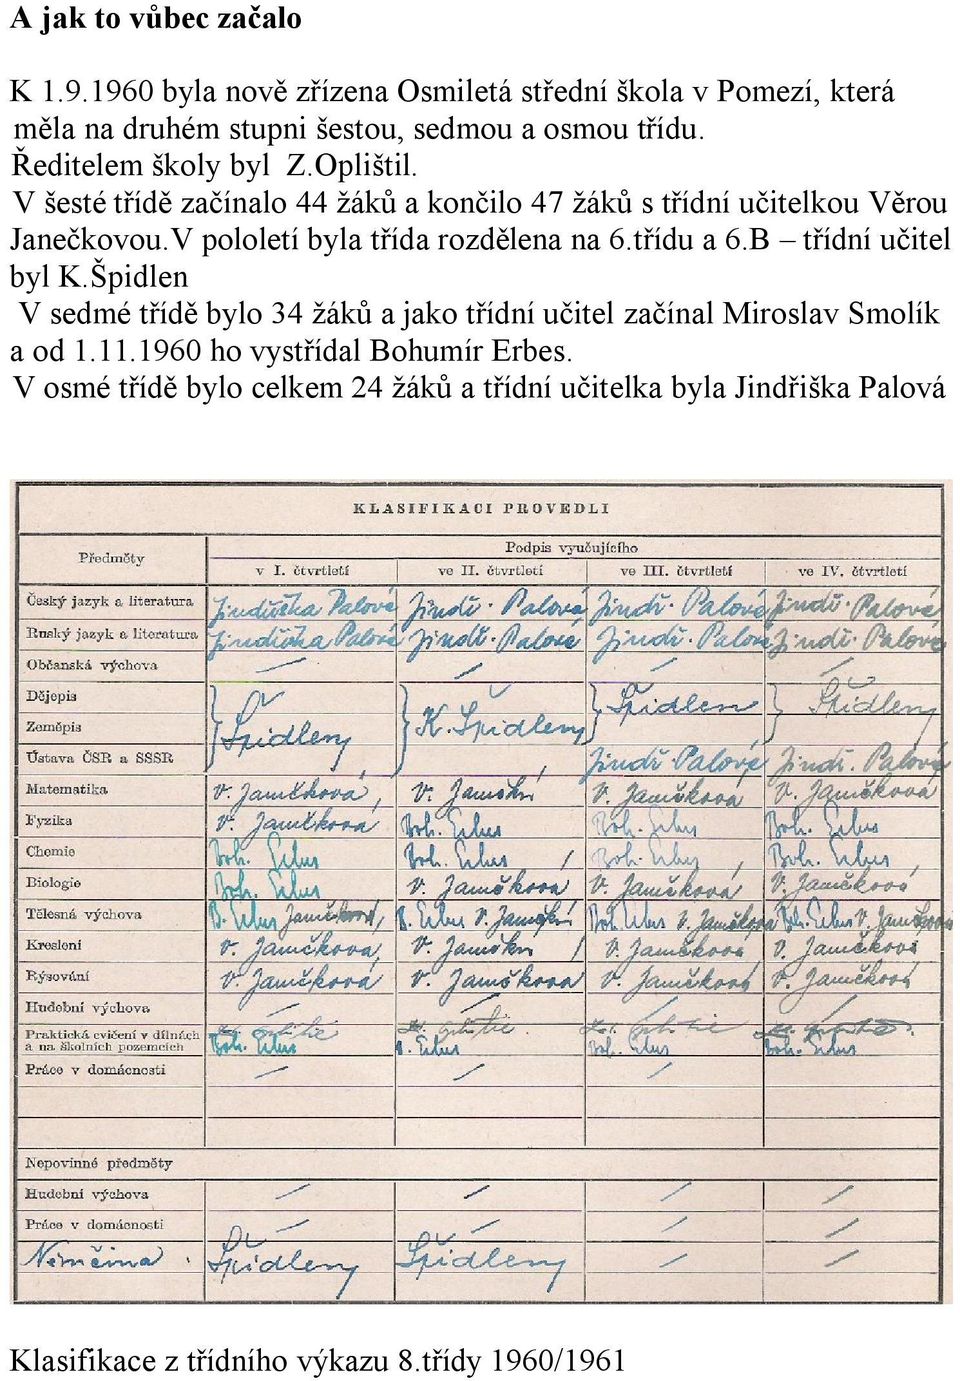 A jak to vůbec začalo
K 1.9.1960 byla nově zřízena Osmiletá střední škola v Pomezí, která
měla na druhém stupni šestou, sedmou a osmou třídu.
Ředitelem školy byl Z.Oplištil.
V šesté třídě začínalo 44 žáků a končilo 47 žáků s třídní učitelkou Věrou
Janečkovou.V pololetí byla třída rozdělena na 6.třídu a 6.B – třídní učitel
byl K.Špidlen
V sedmé třídě bylo 34 žáků a jako třídní učitel začínal Miroslav Smolík
a od 1.11.1960 ho vystřídal Bohumír Erbes.
V osmé třídě bylo celkem 24 žáků a třídní učitelka byla Jindřiška Palová
KLASIFIKACI PROVEDLI
Předměty
Podpis vyučujícího
v I. čtvrtletí ve II. čtvrtletí ve III. čtvrtletí ve IV. čtvrtletí
Český jazyk a literatura Jindřiška Palová Jindř. Palová Jindř. Palová Jindř. Palová
Ruský jazyk a literatura Jindřiška Palová Jindř. Palová Jindř. Palová Jindř. Palová
Občanská výchova
Dějepis
Zeměpis K. Špidlen
Ústava ČSR a SSSR Jindř. Palová Jindř. Palová
Matematika V. Janečková V. V. Janečková V. Janečková
Fyzika V. Janečková Boh. Erbes Boh. Erbes Boh. Erbes
Chemie Boh. Erbes Boh. Erbes Boh. Erbes Boh. Erbes
Biologie Boh. Erbes V. Janečková V. Janečková V. Janečková
Tělesná výchova B. Erbes Janečková B. Erbes V. Boh. Erbes V. Janečková Boh. Erbes V. Janečková
Kreslení V. Janečková V. V. Janečková V. Janečková
Rýsování V. Janečková V. Janečková V. Janečková V. Janečková
Hudební výchova
Praktická cvičení v dílnách
a na školních pozemcích Boh. Erbes B. Erbes Boh. Erbes Boh. Erbes
Práce v domácnosti
Nepovinné předměty
Hudební výchova
Práce v domácnosti
Němčina
Klasifikace z třídního výkazu 8.třídy 1960/1961